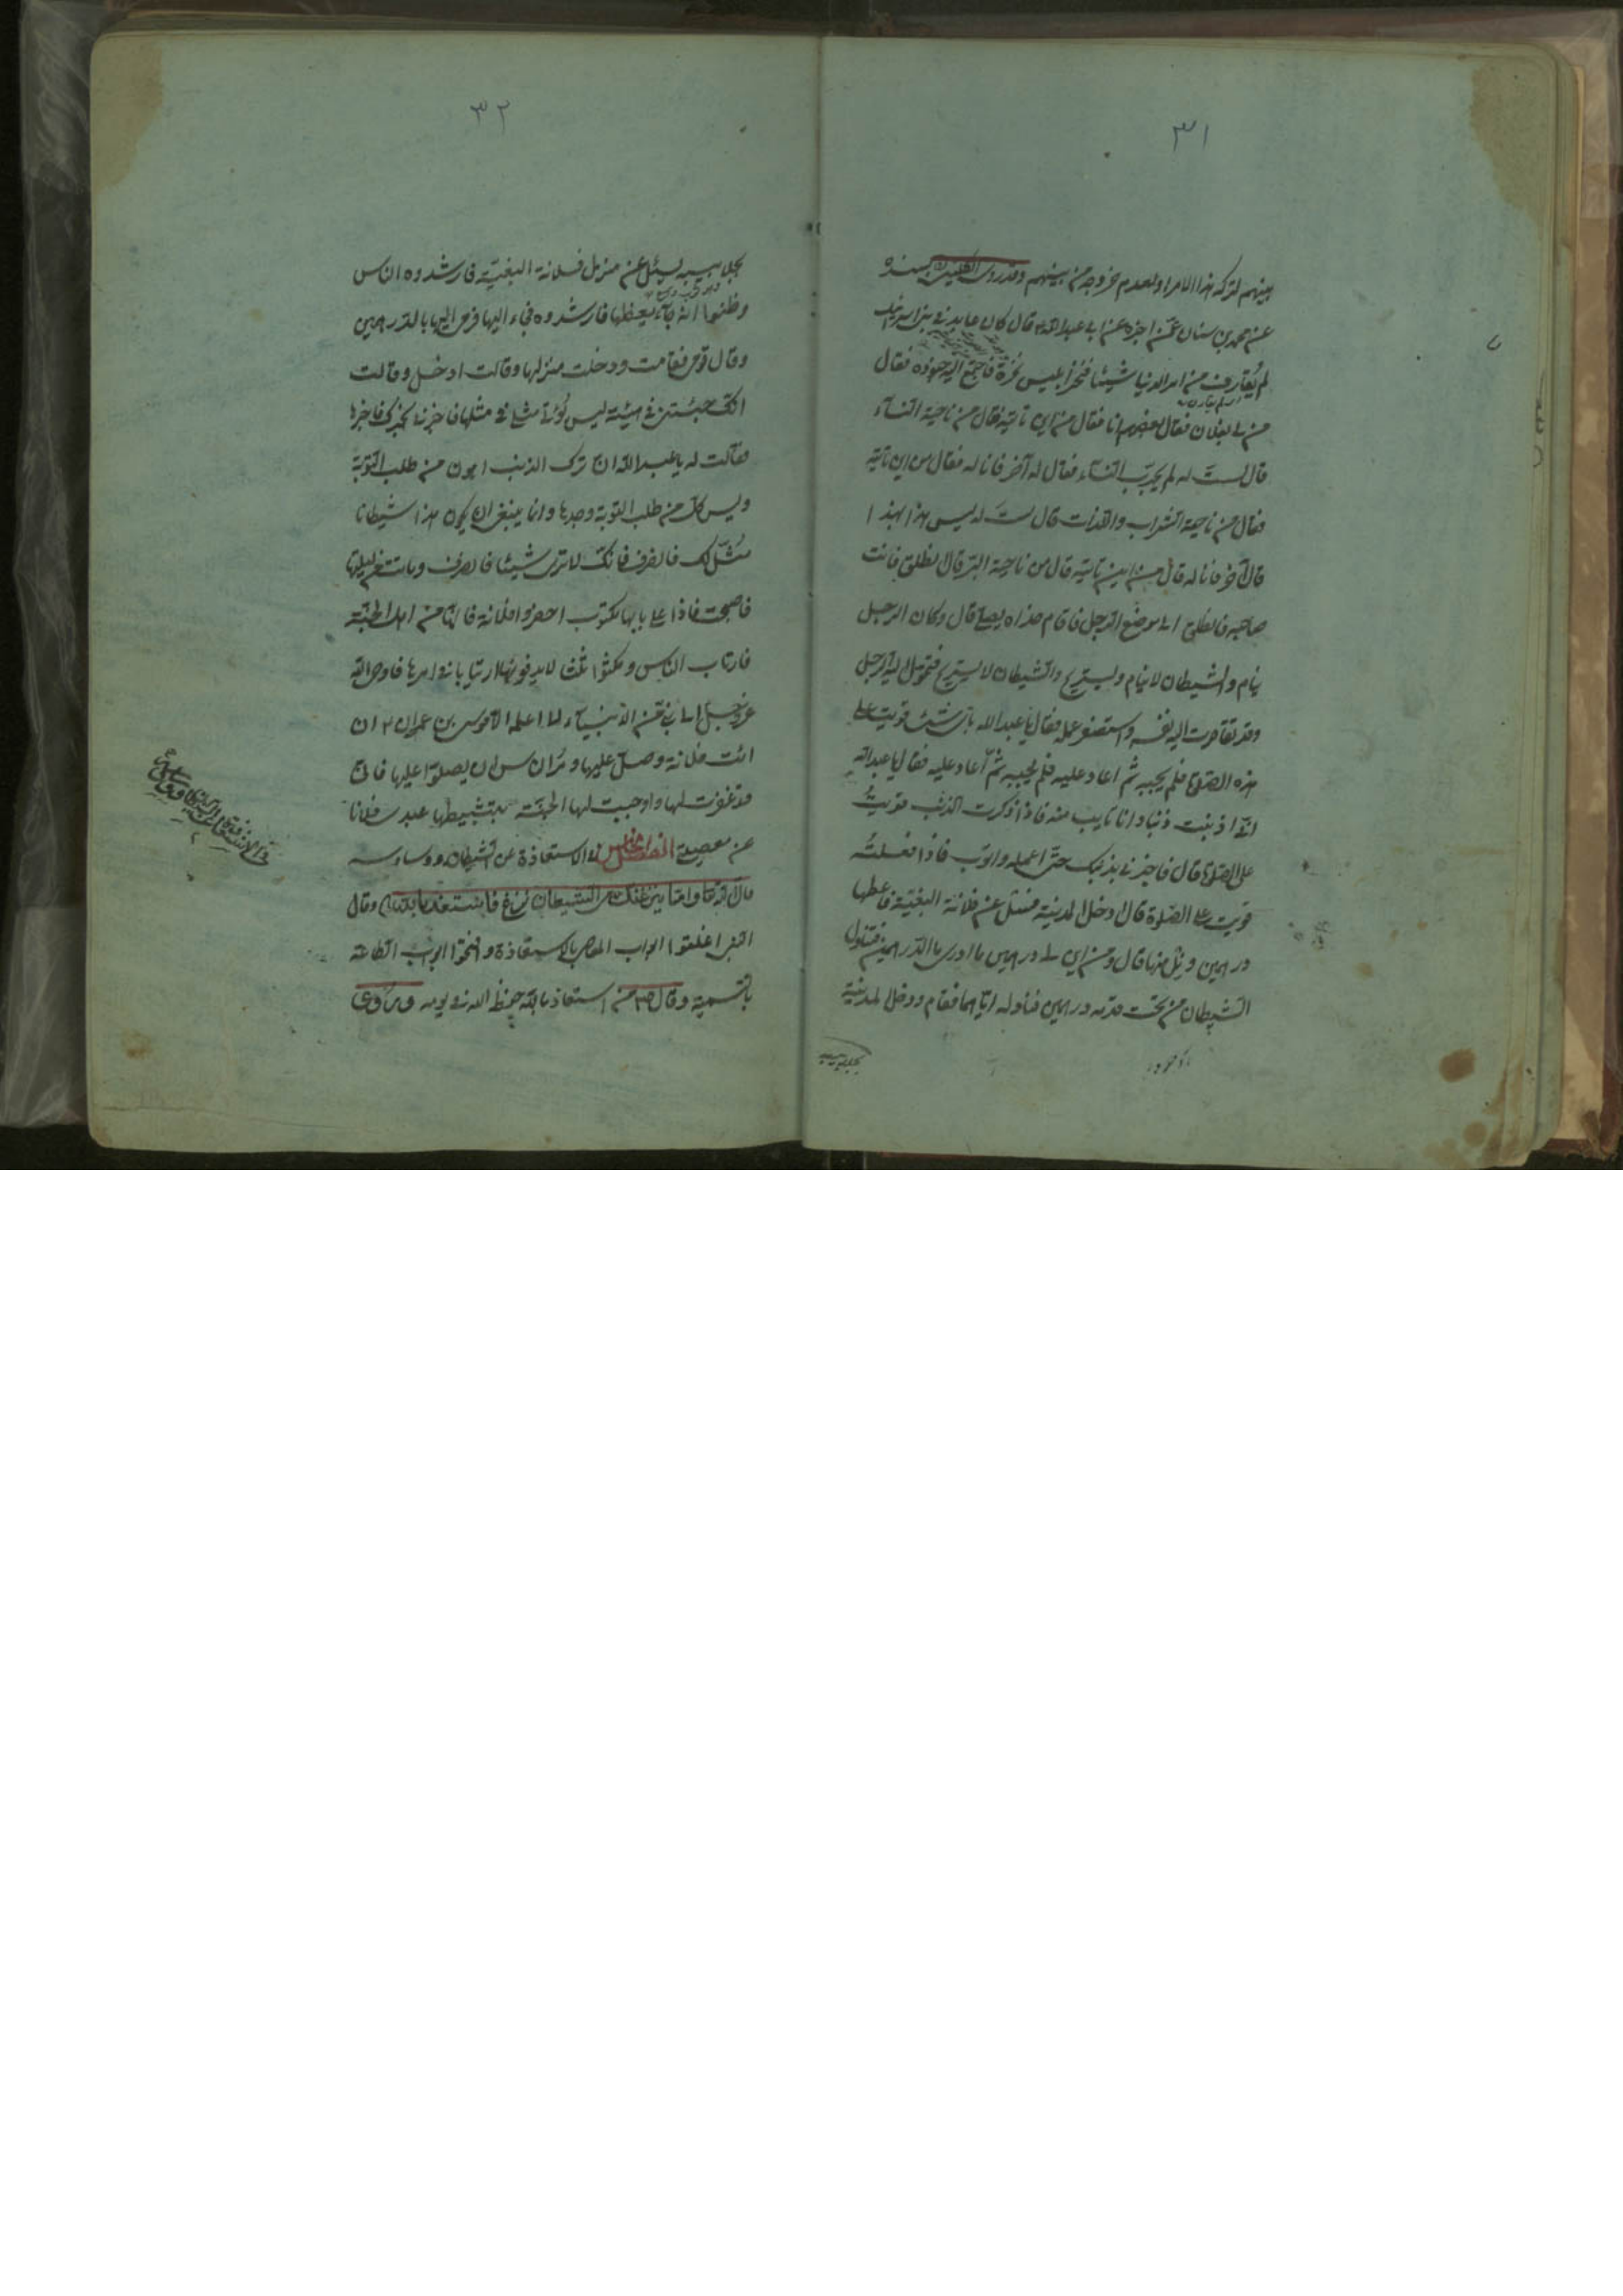 ٣١
بينهم لتركه هذا الامر اولعدم خروجه من بينهم وقد روى الكلينى بسنده
عن محمد بن سنان عمّن اخبره عن ابي عبد الله ع قال كان عابد في بني اسرائيل
لم يُقارف من امر الدنيا شيئا فنخر ابليس نخرة فاجتمع اليه جنوده فقال
من لى بفلان فقال بعضهم انا فقال من اين تاتيه فقال من ناحية النسآء
قال لستَ له لم يجرّب النسآء فقال له آخر فانا له فقال من اين تاتيه
فقال من ناحية الشراب واللذات قال لستَ له ليس هذا بهذا
قال آخر فانا له قال من اين تاتيه قال من ناحية البرّ قال انطلق فانت
صاحبه فانطلق الى موضع الرجل فاقام حذاه يصلى قال وكان الرجل
ينام والشيطان لا ينام ويستريح والشيطان لا يستريح فتحوّل اليه الرجل
وقد تقاصرت اليه نفسه واستصغر عمله فقال يا عبد الله باىّ شئ قويت على
هذه الصلوة فلم يجبه ثم اعاد عليه فلم يجبه ثمّ اعاد عليه فقال يا عبد الله
انّى اذنبت ذنبا وانا تايب منه فاذا ذكرت الذنب قويتُ
على الصلوة قال فاخبرنى بذنبك حتّى اعمله واتوب فاذا فعلتُه
قويت على الصلوة قال ادخل المدينة فسئل عن فلانة البغيّة فاعطها
درهمين ونل منها قال ومن اين لى درهمين ما ادرى ما الدرهمين فتناول
الشيطان من تحت قدمه درهمين فناوله ايّاهما فقام ودخل المدينة
بجلابيبه
٣٢
بجلابيبه يسئل عن منزل فلانة البغيّة فارشدوه الناس
وظنوا انه جآء يعظها فارشدوه فجاء اليها فرمى اليها بالدرهمين
وقال قومى فقامت ودخلت منزلها وقالت ادخل وقالت
انّك جئتنى في هيئة ليس يُؤتى مثلى فى مثلها فاخبرنى بخبرك فاخبرها
فقالت له يا عبد الله انّ ترك الذنب اهون من طلب التوبة
وليس كلّ من طلب التوبة وجدها وانما ينبغى ان يكون هذا شيطانا
مُثّل لك فانصرف فانّك لا ترى شيئا فانصرف وماتت من ليلتها
فاصبحت فاذا على بابها مكتوب احضروا فلانة فانّها من اهل الجنّة
فارتاب الناس ومكثوا ثلثا لا يدفنونها ارتيابا في امرها فاوحى الله
عزّ وجل الى نبى من الانبيآء لا اعلمه الا موسى بن عمران ع ان
ائت فلانة وصلّ عليها ومُر الناس ان يصلّوا عليها فانّى
قد غفرت لها واوجبت لها الجنّة بتثبيطها عبدى فلانا
عن معصيتى الفصل الخامس فى الاستعاذة عن الشيطان ووساوسه
قال الله تعا وامّا ينزغنّك من الشيطان نزغ فاستعذ بالله وقال
النبى اغلقوا ابواب المعاصى بالاستعاذة وافتحوا ابواب الطاعة
بالتسمية وقال ص من استعاذ بالله حفظ الله فى يومه